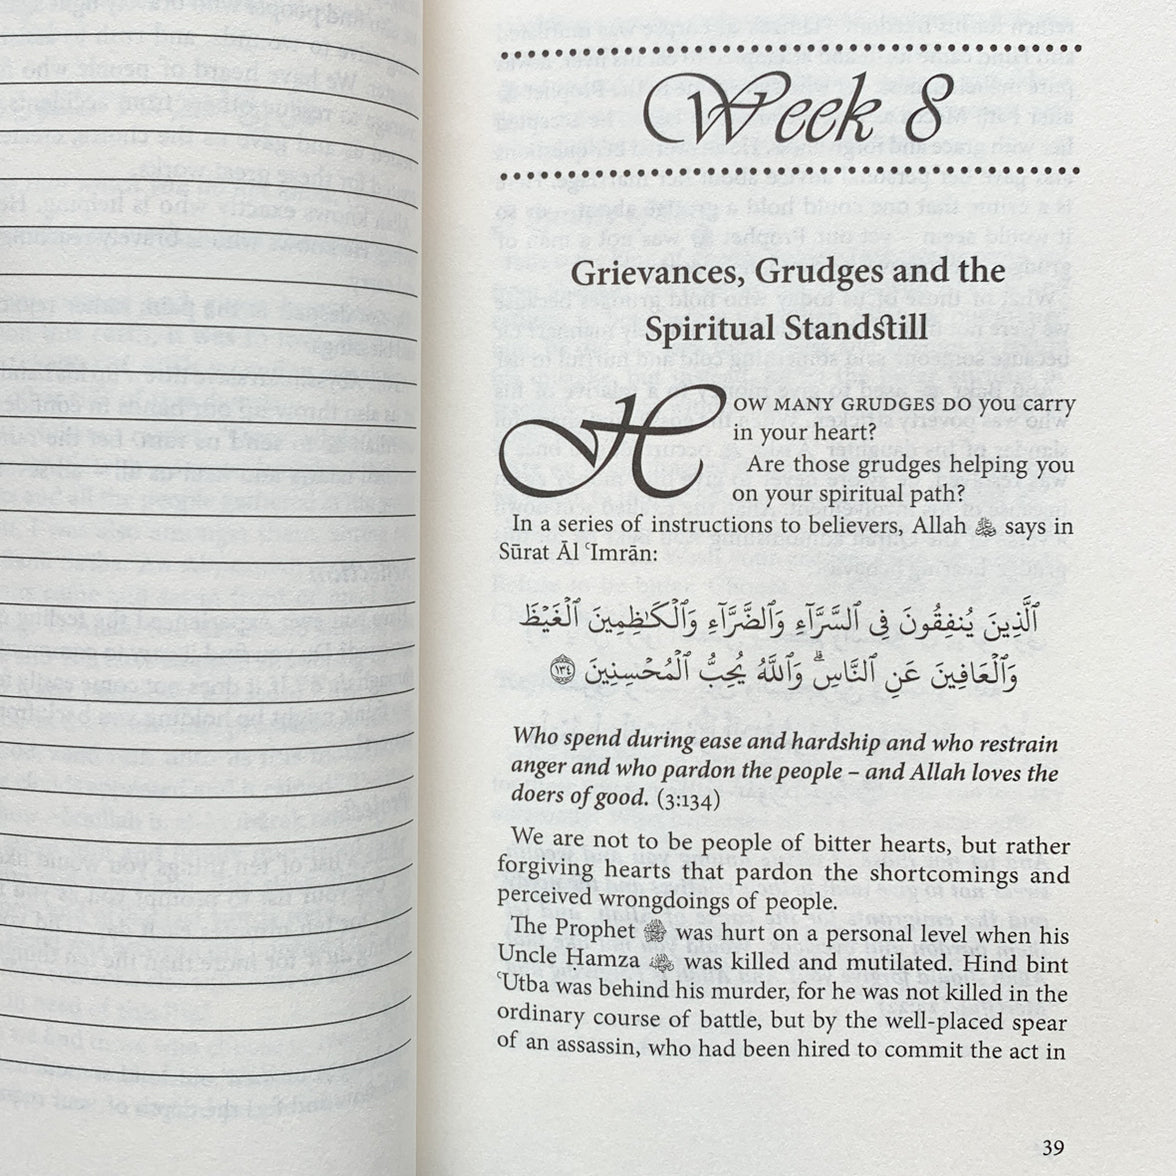 Week 8
Grievances, Grudges and the
Spiritual Standstill
HOW MANY GRUDGES DO you carry
in your heart?
Are those grudges helping you
on your spiritual path?
In a series of instructions to believers, Allah ﷻ says in
Sūrat Āl ʿImrān:
ٱلَّذِينَ يُنفِقُونَ فِى ٱلسَّرَّآءِ وَٱلضَّرَّآءِ وَٱلْكَـٰظِمِينَ ٱلْغَيْظَ
وَٱلْعَافِينَ عَنِ ٱلنَّاسِ ۗ وَٱللَّهُ يُحِبُّ ٱلْمُحْسِنِينَ ١٣٤
Who spend during ease and hardship and who restrain
anger and who pardon the people – and Allah loves the
doers of good. (3:134)
We are not to be people of bitter hearts, but rather
forgiving hearts that pardon the shortcomings and
perceived wrongdoings of people.
The Prophet ﷺ was hurt on a personal level when his
Uncle Ḥamza was killed and mutilated. Hind bint
ʿUtba was behind his murder, for he was not killed in the
ordinary course of battle, but by the well-placed spear
of an assassin, who had been hired to commit the act in
39